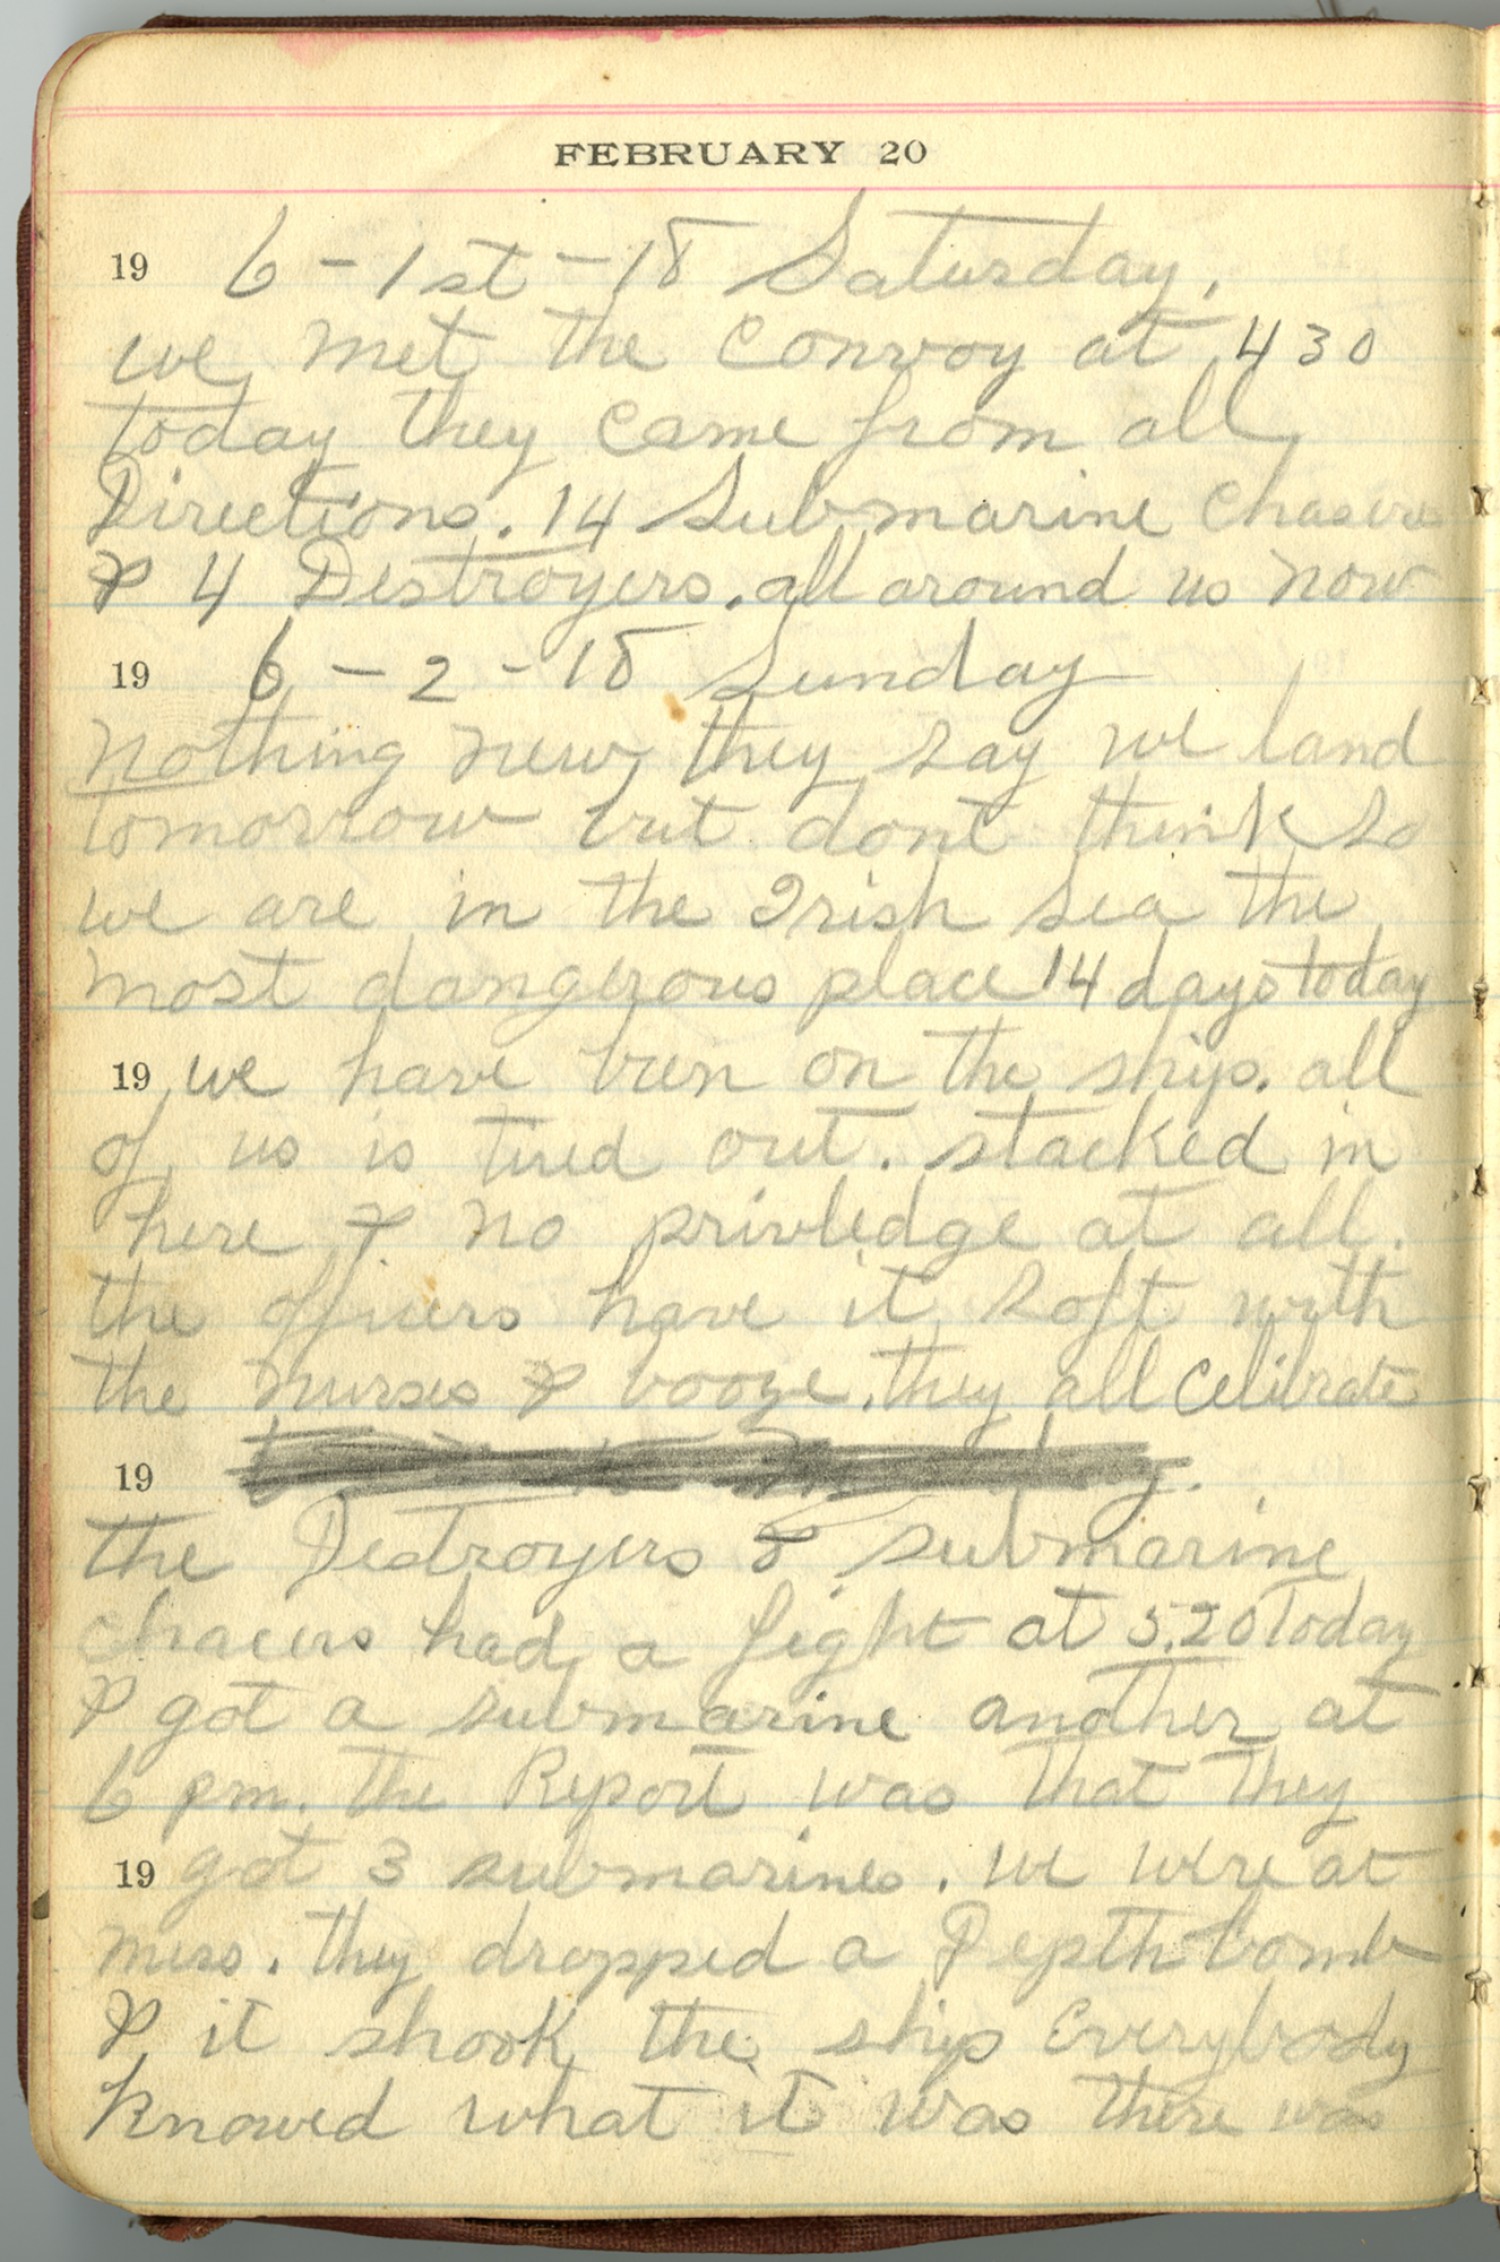 FEBRUARY 20
19 6 - 1st - 18 Saturday,
we met the Convoy at 430
today they came from all
Directions. 14 Submarine Chasers
& 4 Destroyers. all around us now
19 6 - 2 - 18 Sunday
nothing new, they say we land
tomorrow but dont think so
we are in the Irish Sea the
most dangerous place 14 days today
19 we have been on the ship. all
of us is tired out. stacked in
here & no privledge at all.
the officers have it soft with
the nurses & booze. they all celibrate
19
the Destroyers & submarine
chacers had a fight at 5.20 Today
& got a submarine another at
6 pm. the Report was that they
19 got 3 submarines. we were at
mess. they dropped a Depth bomb
& it shook the ship Everybody
knowed what it was there was